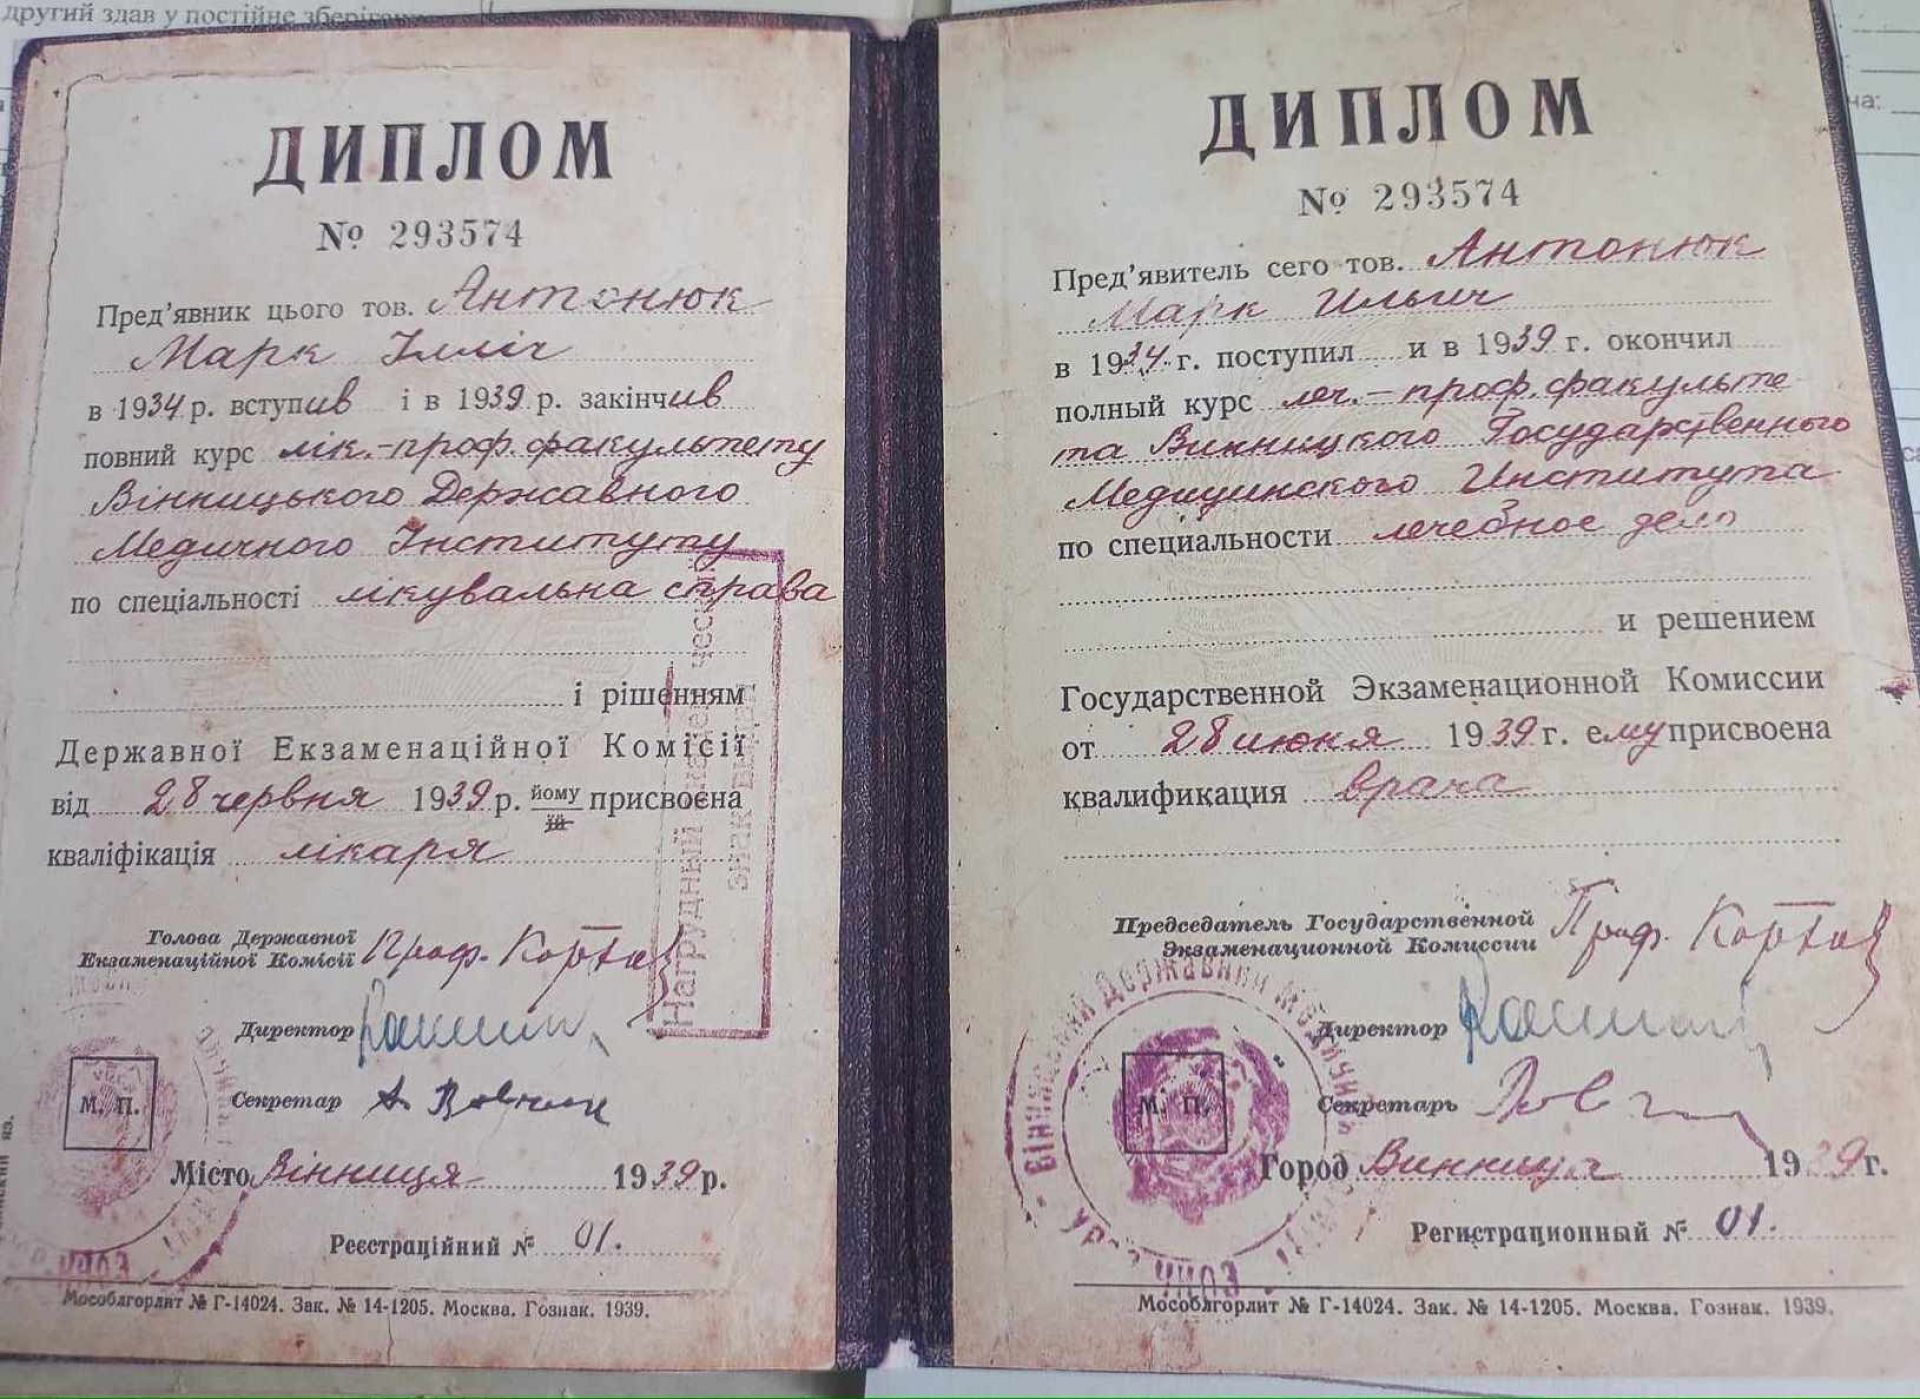 другий здав у постійне
ДИПЛОМ
№ 293574
Пред'явник цього тов. Антонюк
Марк Ілліч
в 1934 р. вступив і в 1939 р. закінчив
повний курс лік.-проф. факультету
Вінницького Державного
Медичного Інституту
по спеціальності лікувальна справа
і рішенням
Державної Екзаменаційної Комісії
від 28 червня 1939 р. йому присвоєна
їй
кваліфікація лікаря
Голова Державної
Екзаменаційної Комісії Проф.
Директор
Секретар
М. П.
Місто Вінниця 1939 р.
Реєстраційний № 01.
Мособлгорлит № Г-14024. Зак. № 14-1205. Москва. Гознак. 1939.
Нагрудный
знак
ДИПЛОМ
№ 293574
Пред'явитель сего тов. Антонюк
Марк Ильич
в 1934 г. поступил и в 1939 г. окончил
полный курс леч.-проф. факульте
та Винницкого Государственного
Медицинского Института
по специальности лечебное дело
и решением
Государственной Экзаменационной Комиссии
от 28 июня 1939 г. ему присвоена
квалификация врача
Председатель Государственной
Экзаменационной Комиссии Проф.
Директор
Секретарь
М. П.
Город Винница 1939 г.
Регистрационный № 01.
Мособлгорлит № Г-14024. Зак. № 14-1205. Москва. Гознак. 1939.